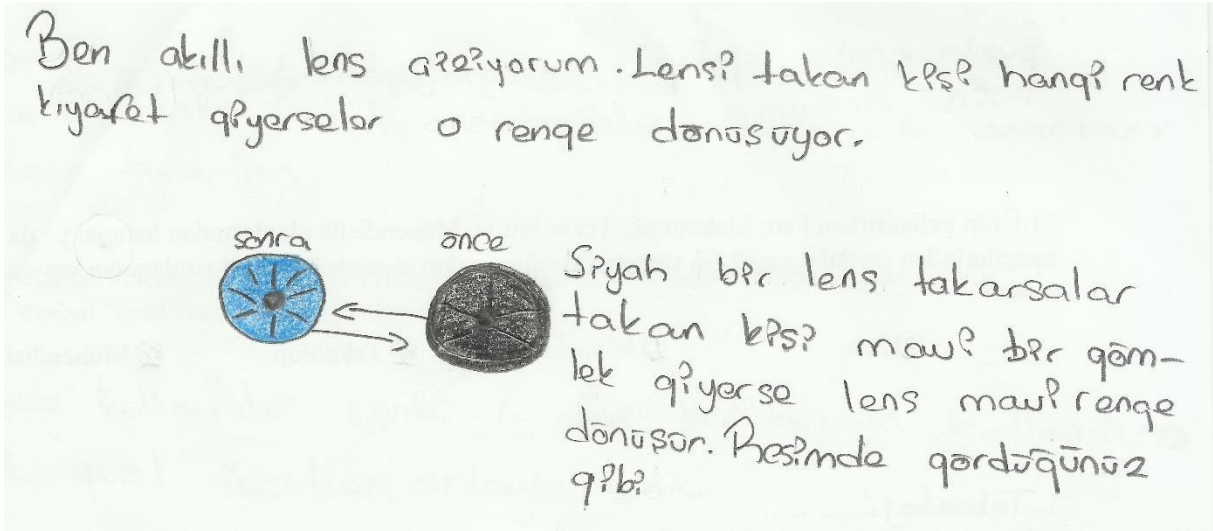 Ben akıllı lens çiziyorum. Lensi takan kişi hangi renk
kıyafet giyerseler o renge dönüşüyor.
sonra
önce
Siyah bir lens takarsalar
takan kişi mavi bir göm-
lek giyerse lens mavi renge
dönüşür. Resimde gördüğünüz
gibi